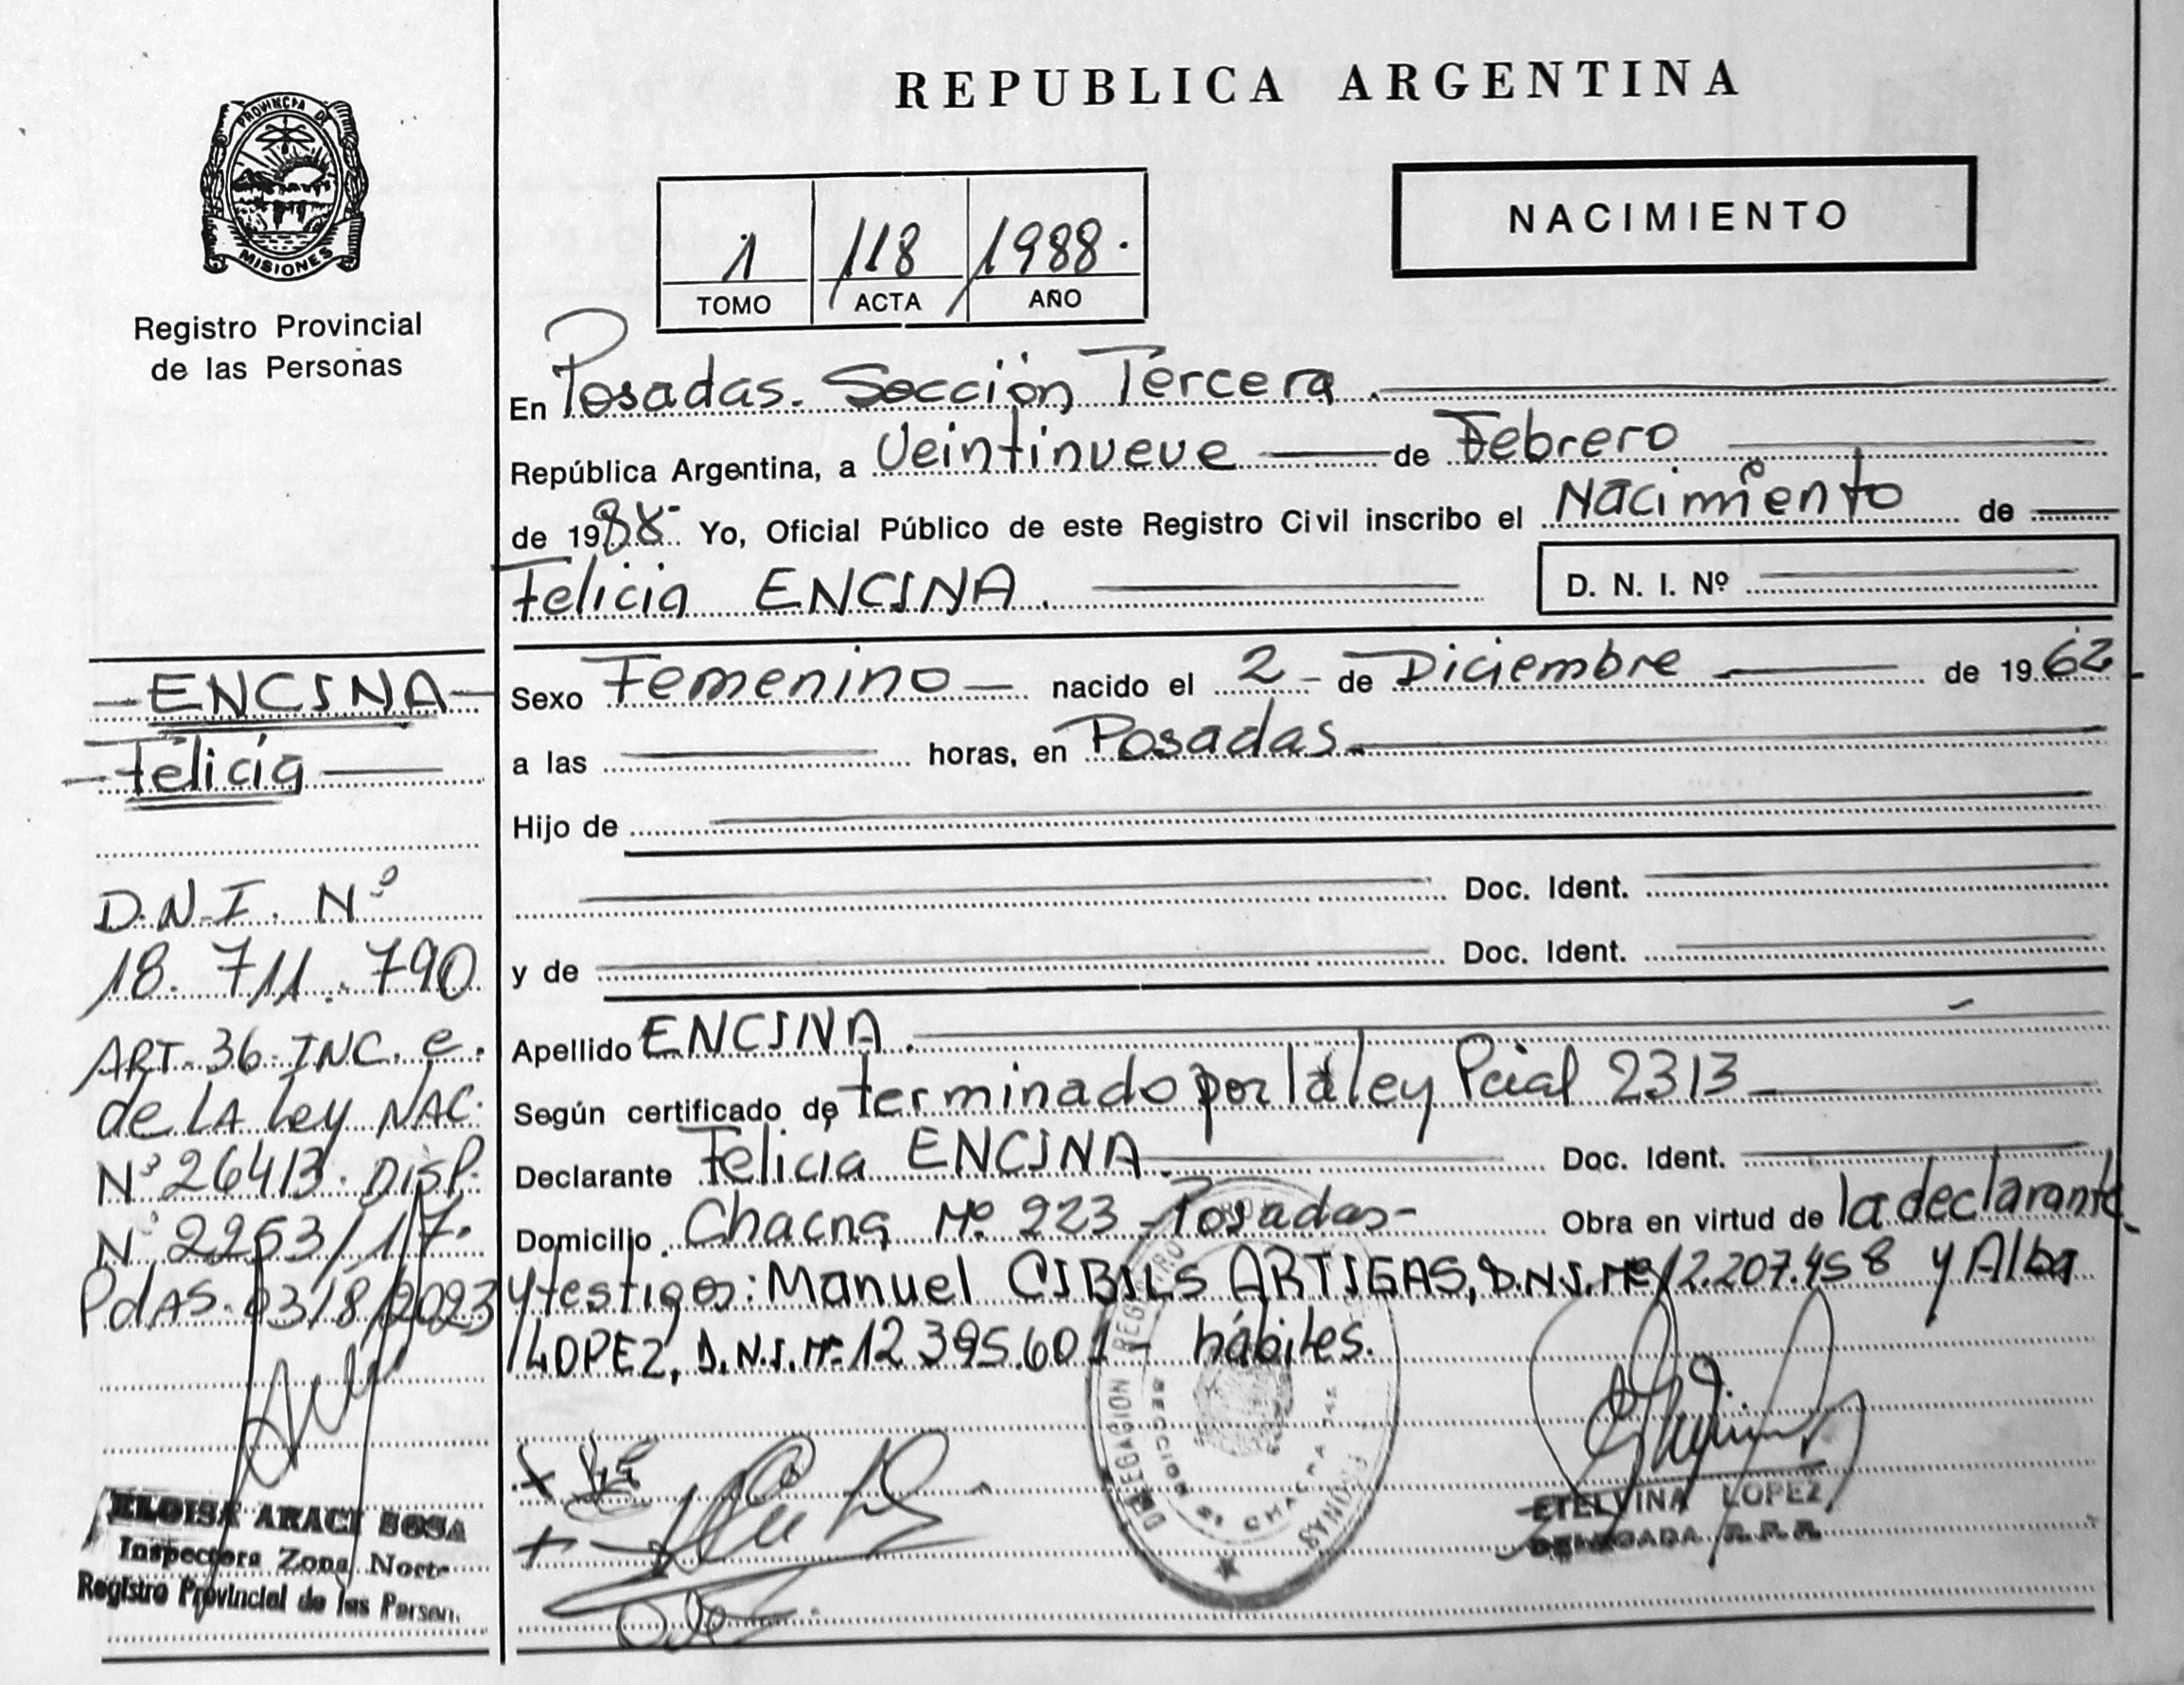 REPUBLICA ARGENTINA
PROVINCIA DE
MISIONES
Registro Provincial
de las Personas
NACIMIENTO
1 118 1988.
TOMO ACTA AÑO
En Posadas. Sección Tercera.
República Argentina, a Veintinueve de Febrero
de 1988- Yo, Oficial Público de este Registro Civil inscribo el Nacimiento de
Felicia ENCINA. D. N. I. Nº
Sexo Femenino nacido el 2 - de Diciembre de 1962
a las horas, en Posadas.
Hijo de
Doc. Ident.
y de Doc. Ident.
Apellido ENCINA.
Según certificado de terminado por la ley Pcial 2313
Declarante Felicia ENCINA. Doc. Ident.
Domicilio Chacra Nº 223 - Posadas - Obra en virtud de la declarante
y testigos: Manuel CIBILS ARTIGAS, D.N.I. Nº 12.207.458 y Alba
LOPEZ, D.N.I. Nº 12 395.601 - hábiles.
ENCINA
Felicia
D.N.I. Nº
18.711.790
ART-36-INC. e.
de LA Ley NAC.
Nº 26413. DISP.
Nº 2253/17.
PdAS. 03/8/2023
ELOISA ARACI SOSA
Inspectora Zona Norte
Registro Provincial de las Person.
ETELVINA LOPEZ
DELEGADA R.P.P.
DELEGACION REGISTRO
PERSONAS
CHACRA